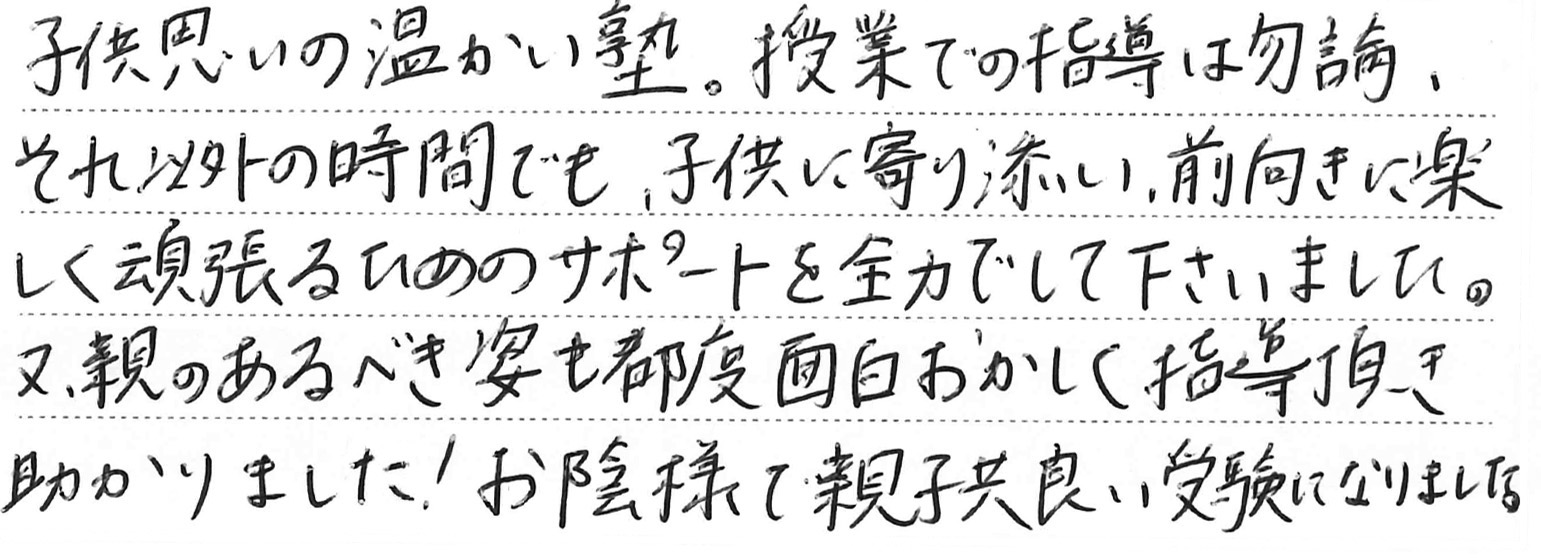 子供思いの温かい塾。授業での指導は勿論、
それ以外の時間でも、子供に寄り添い、前向きに楽
しく頑張るためのサポートを全力でして下さいました。
又、親のあるべき姿も都度面白おかしく指導頂き
助かりました!お陰様で親子共良い受験になりました